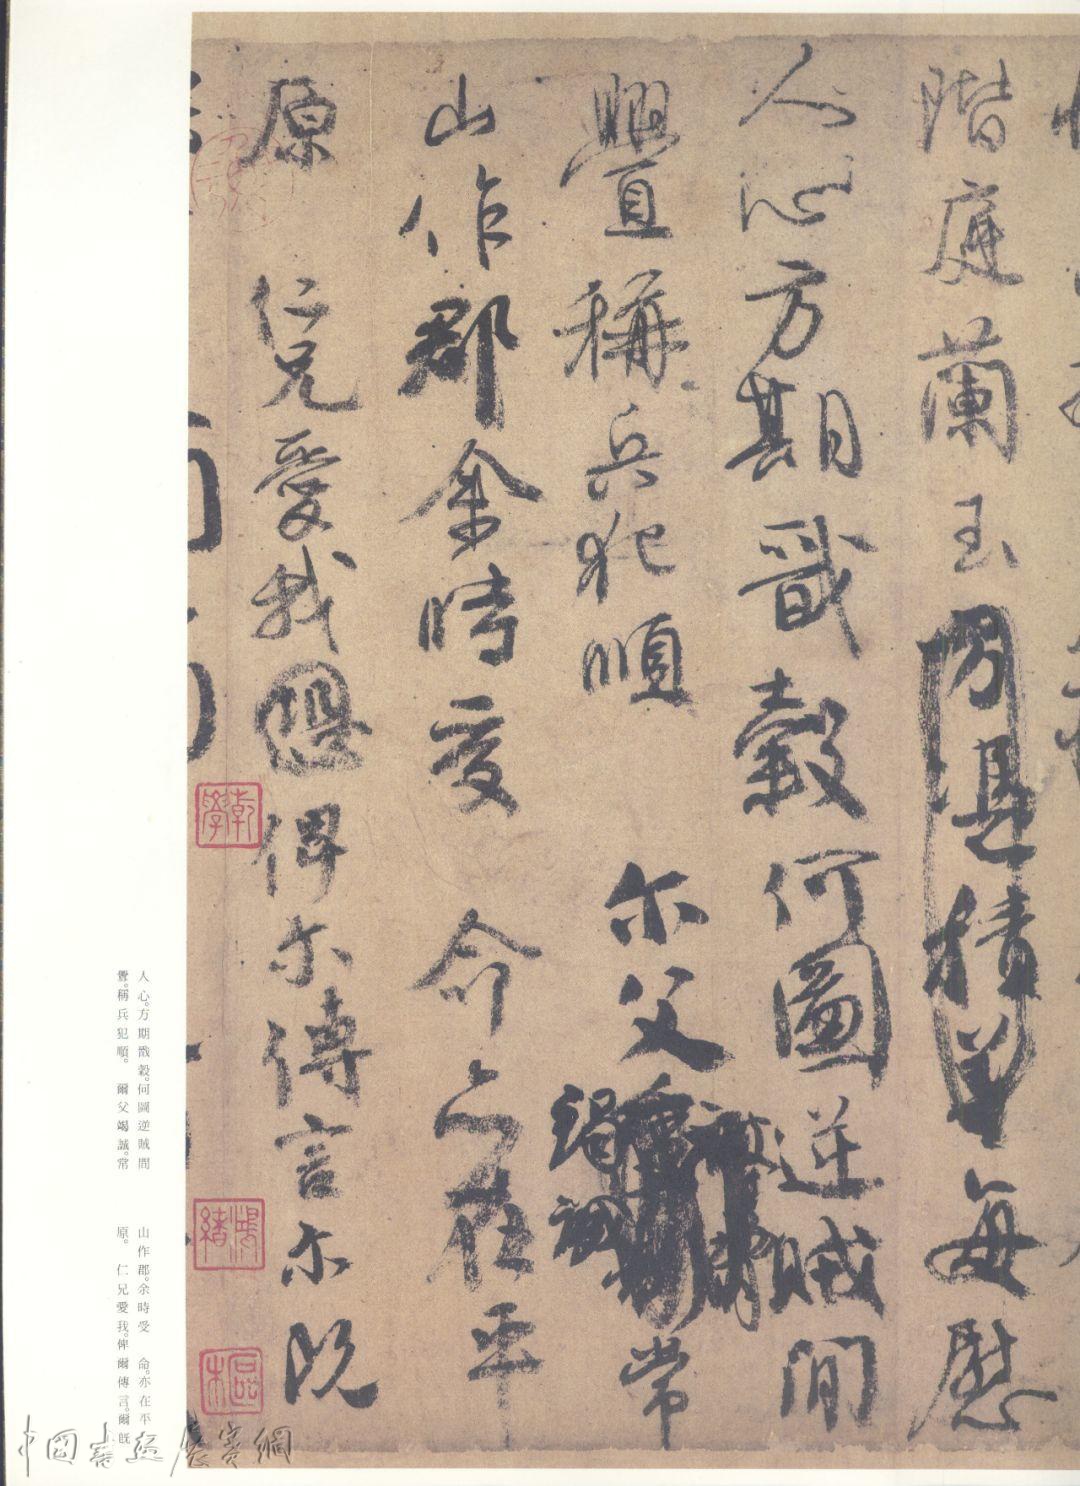 階庭蘭玉方憑積善每慰
人心方期戩穀何圖逆賊間
舋稱兵犯順 尔父竭誠常
山作郡余時受 命亦在平
原 仁兄愛我恐俾尔傳言尔既
人心。方期戩穀。何圖逆賊間
舋。稱兵犯順。 爾父竭誠。常
山作郡。余時受 命。亦在平
原。 仁兄愛我。俾爾傳言。爾既
乾學
鴻緒
中國書法
網